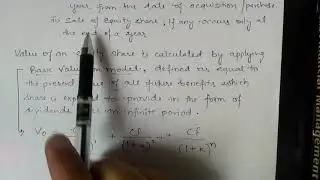 year from the date of acquisition / purchase.
The Sale of Equity share, if any occurs only at
the end of a year
Value of an share is calculated by applying
Basic Valuation model, defined as equal to
the present value of all future benefits which
share is expected to provide in the form of
dividends over an infinite period.
V0 + CF/(1+k)² + CF/(1+k)ⁿ